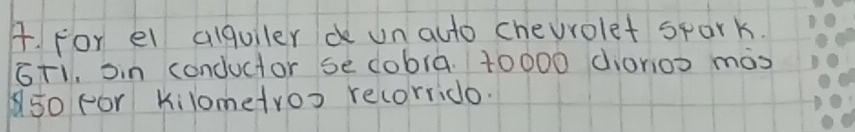 7. Por el alquiler de un auto chevrolet spark.
GT1. sin conductor se cobra. 70000 diarios más
$50 por Kilometros recorrido.